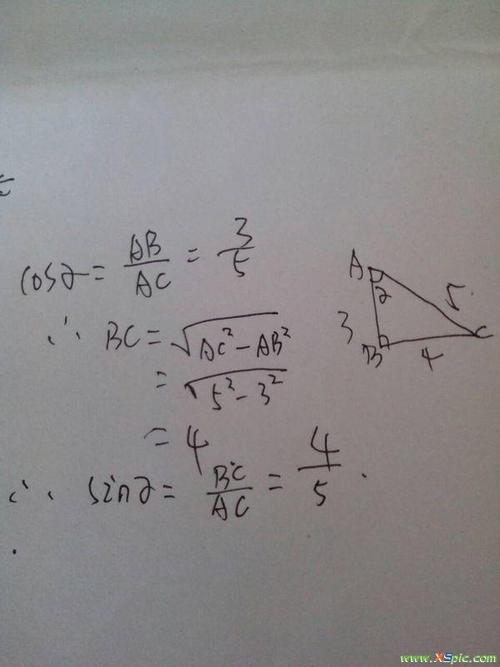 cosα = AB/AC = 3/5
∴ BC = √(AC² − AB²)
= √(5² − 3²)
= 4
∴ sinα = BC/AC = 4/5.
A
α
5
3
B
4
C
www.XSpic.com